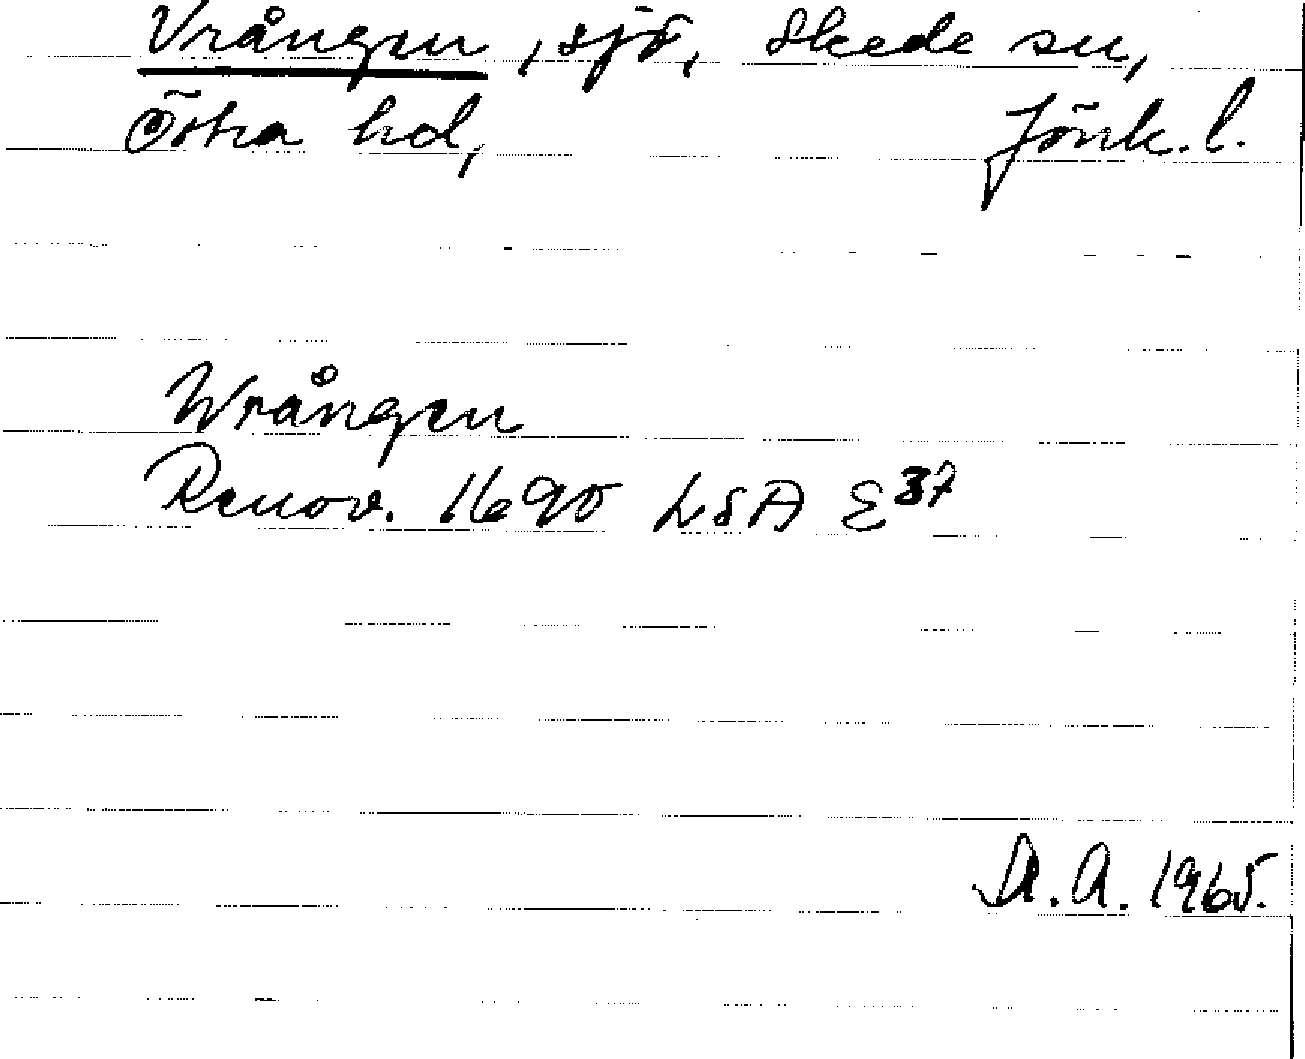 Vrången, sjö, Skede sn,
Östra hd, Jönk. l.
Wrången
Renov. 1690 LSA E 37
A. A. 1965.